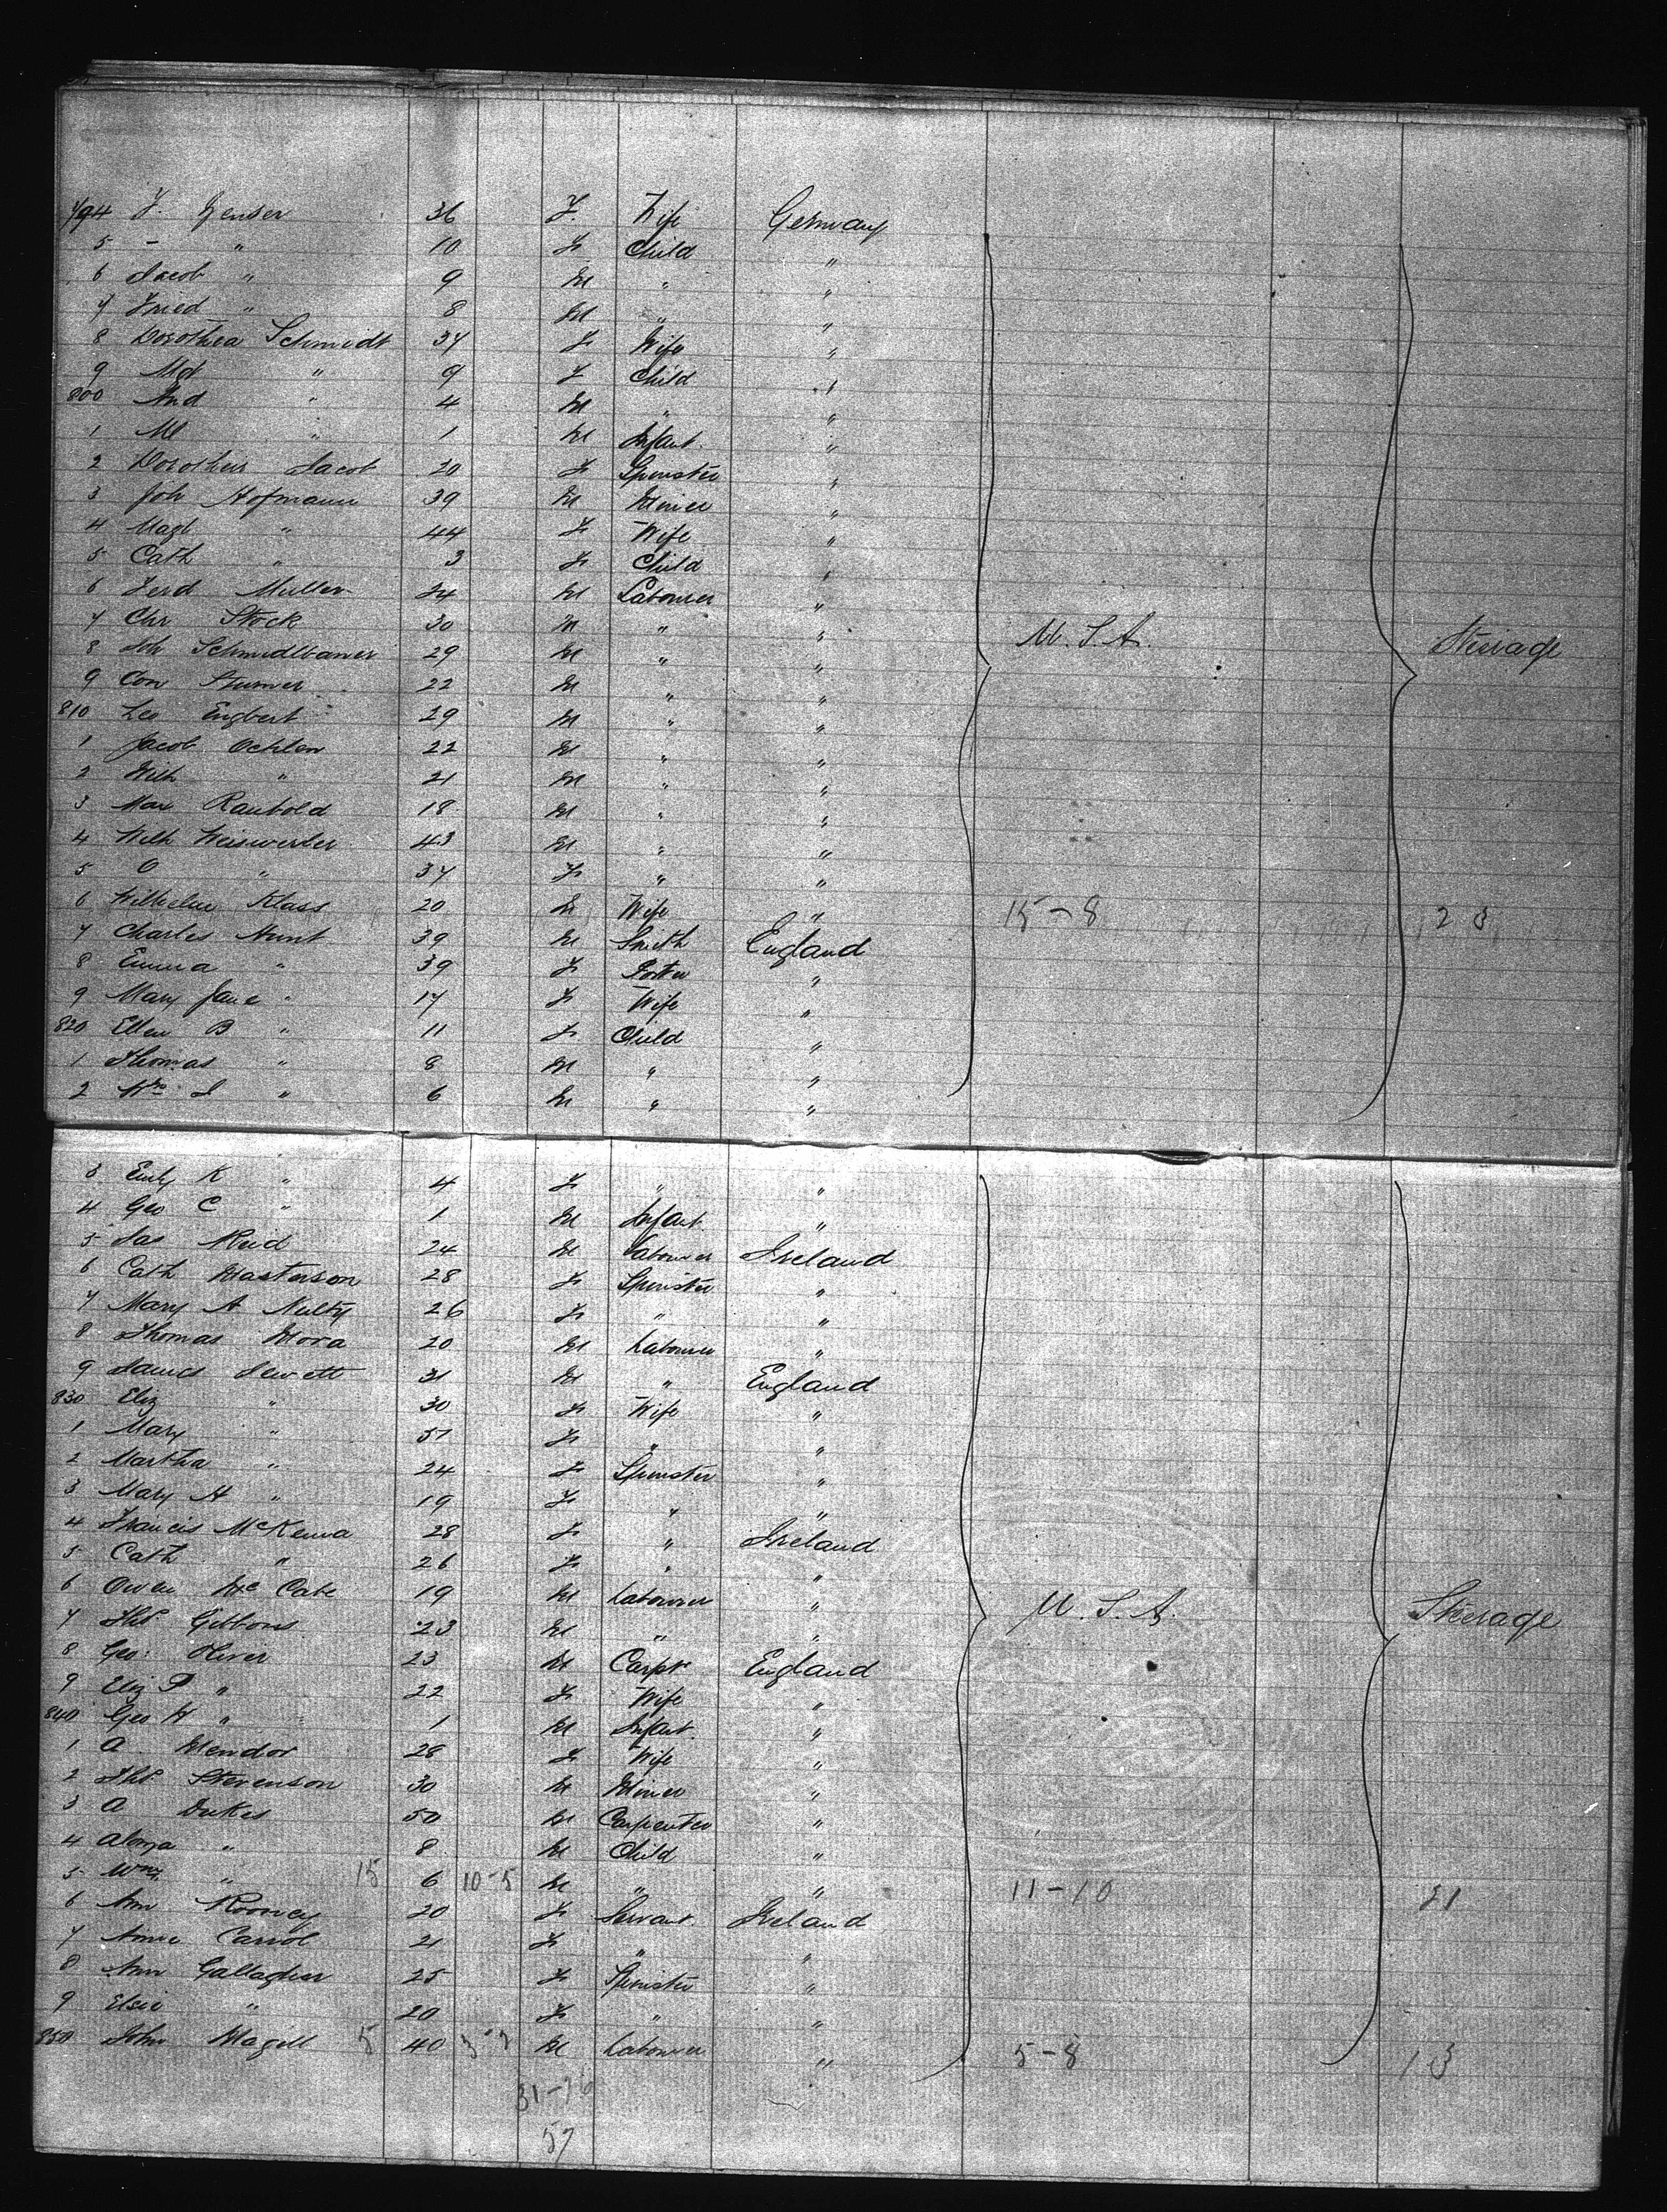 794 F. Genser 36 F. Wife Germany
5 - " 10 F Child "
6 Jacob " 9 M " "
7 Fried " 8 M " "
8 Dorothea Schmidt 37 F Wife "
9 Mgt " 9 F Child "
800 And " 4 M " "
1 Ml " 1 M Infant "
2 Dorothea Jacob 20 F Spinster "
3 Joh Hofmann 39 M Miner "
4 Magt " 44 F Wife "
5 Cath " 3 F Child "
6 Ferd Muller 24 M Labourer "
7 Chr Stock 30 M " " U.S.A. Steerage
8 Joh Schmidlbauer 29 M " "
9 Con Sturmer 22 M " "
810 Leo Engbert 29 M " "
1 Jacob Ochlen 22 M " "
2 Wilh " 21 M " "
3 Max Raubold 18 M " "
4 Wilh Weiswerber 43 M " "
5 O " 37 F " "
6 Wilhelm Klass 20 M Wife " 15-8 23
7 Charles Hunt 39 M Smith England
8 Emma " 39 F "
9 Mary Jane " 17 F Wife "
820 Ellen B " 11 F Child "
1 Thomas " 8 M " "
2 Wm J " 6 M " "
3 Emly K " 4 F " "
4 Geo C " 1 M Infant "
5 Jas Reid 24 M Labourer Ireland
6 Cath Masterson 28 F Spinster "
7 Mary A Nulty 26 F " "
8 Thomas Hora 20 M Labourer "
9 James Jewett 31 M " England
830 Eliz " 30 F Wife "
1 Mary " 57 F " "
2 Martha " 24 F Spinster "
3 Mary H " 19 F " "
4 Francis McKenna 28 F " Ireland
5 Cath " 26 F " "
6 Owen McCabe 19 M Labourer " U.S.A. Steerage
7 Thos Gibbons 23 M " "
8 Geo: Oliver 23 M Carptr England
9 Eliz P " 22 F Wife "
840 Geo H " 1 M Infant "
1 A Mendor 28 F Wife "
2 Thos Stevenson 30 M Miner "
3 A Dukes 50 M Carpenter "
4 Alonza " 8 M Child "
5 Wm " 15 6 10-5 M " " 11-10 21
6 Ann Rooney 20 F Servant Ireland
7 Anne Carrol 21 F " "
8 Ann Gallagher 25 F Spinster "
9 Elsie " 20 F " "
850 John Magill 5 40 M Labourer " 5-8 13
57